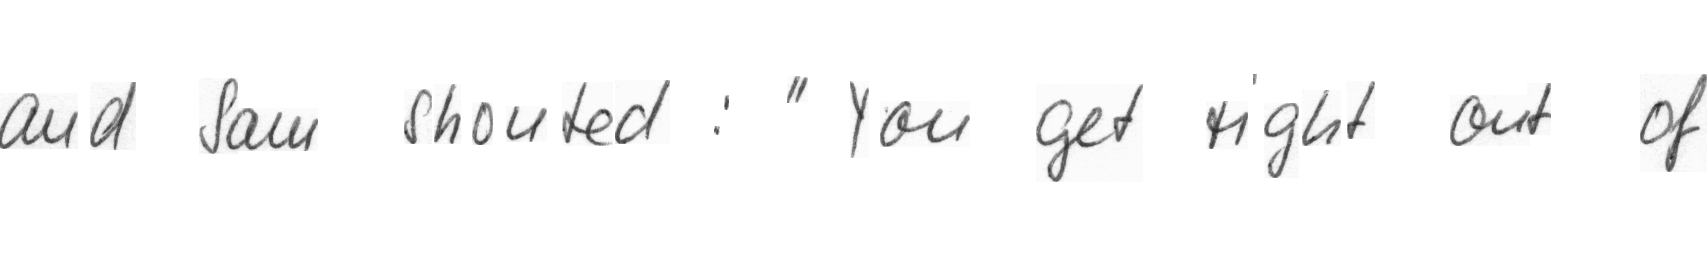 and Sam shouted : " You get right out of